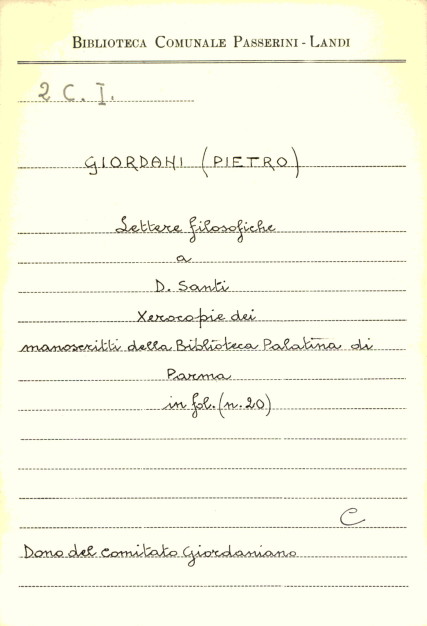 BIBLIOTECA COMUNALE PASSERINI - LANDI
2 C. I.
GIORDANI (PIETRO)
Lettere filosofiche
a
D. Santi
Xerocopie dei
manoscritti della Biblioteca Palatina di
Parma
in fol. (n. 20)
C
Dono del Comitato Giordaniano